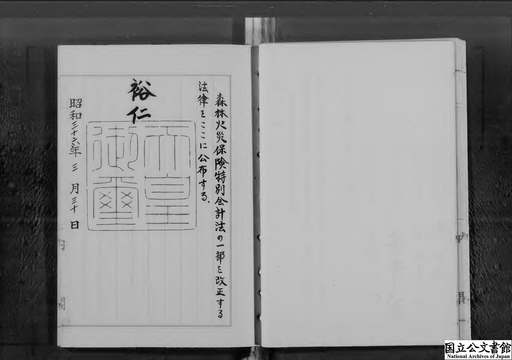 森林火災保険特別会計法の一部を改正する
法律をここに公布する。
裕仁
天皇
御璽
昭和三十六年三月三十日
国立公文書館
National Archives of Japan